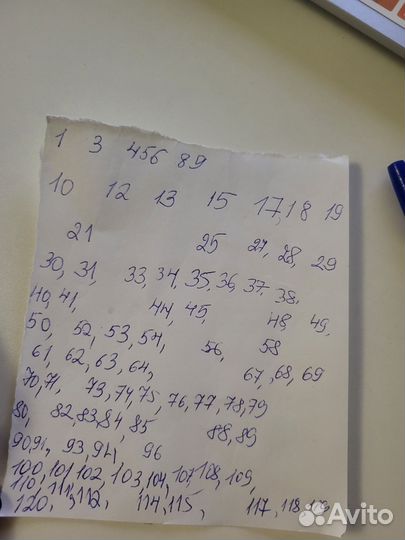 1 3 456 89
10 12 13 15 17,18 19
21 25 27, 28, 29
30, 31, 33, 34, 35, 36, 37, 38,
40, 41, 44, 45, 48, 49,
50, 52, 53, 54, 56, 58
61, 62, 63, 64, 67, 68, 69
70, 71, 73, 74, 75, 76, 77, 78, 79
80, 82, 83, 84, 85 88, 89
90, 91, 93, 94, 96
100, 101, 102, 103, 104, 107, 108, 109,
110, 111, 112, 114, 115, 117, 118, 119
120,
Avito